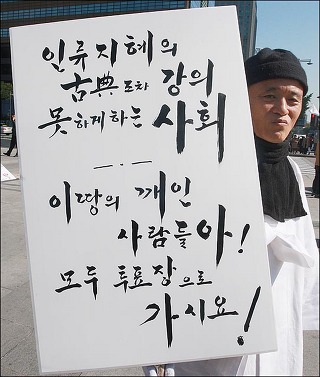 인류지혜의
古典도차 강의
못하게하는 사회
이땅의 깨인
사람들아!
모두 투표장으로
가시요!